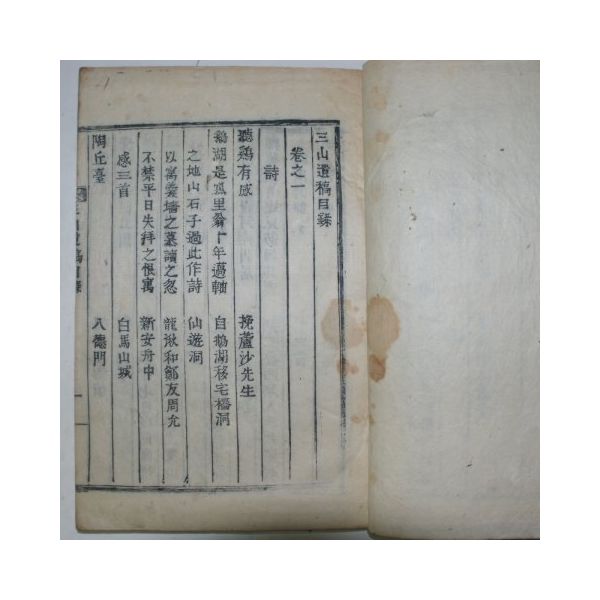 三山遺稿目錄
卷之一
詩
聽鷄有感
挽蘆沙先生
鵝湖是寓里翁十年邁軸
自鵝湖移宅樠洞
之地山石子過此作詩
仙遊洞
以寓羹墻之慕讀之忽
龍湫和鄭友周允
不禁平日失拜之恨寓
新安舟中
感三首
白馬山城
陶丘臺
八德門
三山遺稿目錄
一